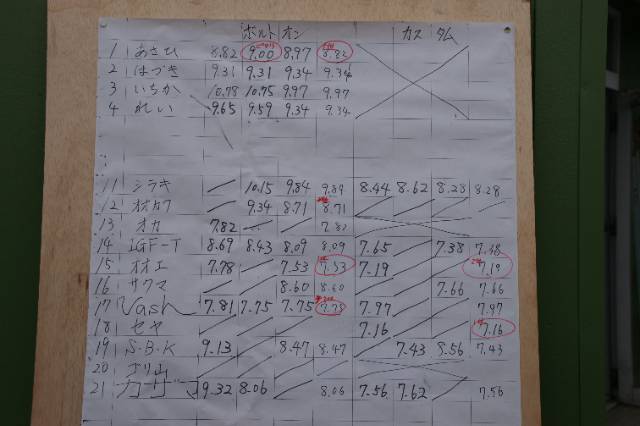 ボルト オン カスタム
1 あさひ 8.82 9.00 8.97 8.82
2 はづき 9.31 9.31 9.34 9.34
3 いちか 10.78 10.75 9.97 9.97
4 れい 9.65 9.59 9.34 9.34
11 シラキ 10.15 9.84 9.84 8.44 8.62 8.28 8.28
12 9.34 8.71 8.71
13 オカ 7.82 7.82
14 IGF-T 8.69 8.43 8.09 8.09 7.65 7.38 7.38
15 オオエ 7.78 7.53 7.53 7.19 7.19
16 サクマ 8.60 8.60 7.66 7.66
17 Vash 7.81 7.75 7.75 7.75 7.97 7.97
18 セヤ 7.16 7.16
19 S.B.K 9.13 8.47 8.47 7.43 8.56 7.43
20 ホリ山
21 9.32 8.06 8.06 7.56 7.62 7.56